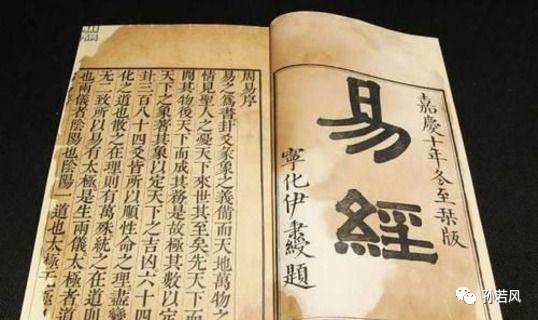 嘉慶十年冬至栞版
易經
寧化伊秉綬題
周易序
易之爲書卦爻彖象之義備而天地萬物之
情見聖人之憂天下來世其至矣先天下而
開其物後天下而成其務是故極其數以定
天下之象著其象以定天下之吉凶六十四
卦三百八十四爻皆所以順性命之理盡變
化之道也散之在理則有萬殊統之在道則
無二致所以易有太極是生兩儀太極者道
也兩儀者陰陽也陰陽一道也太極无
孙若风